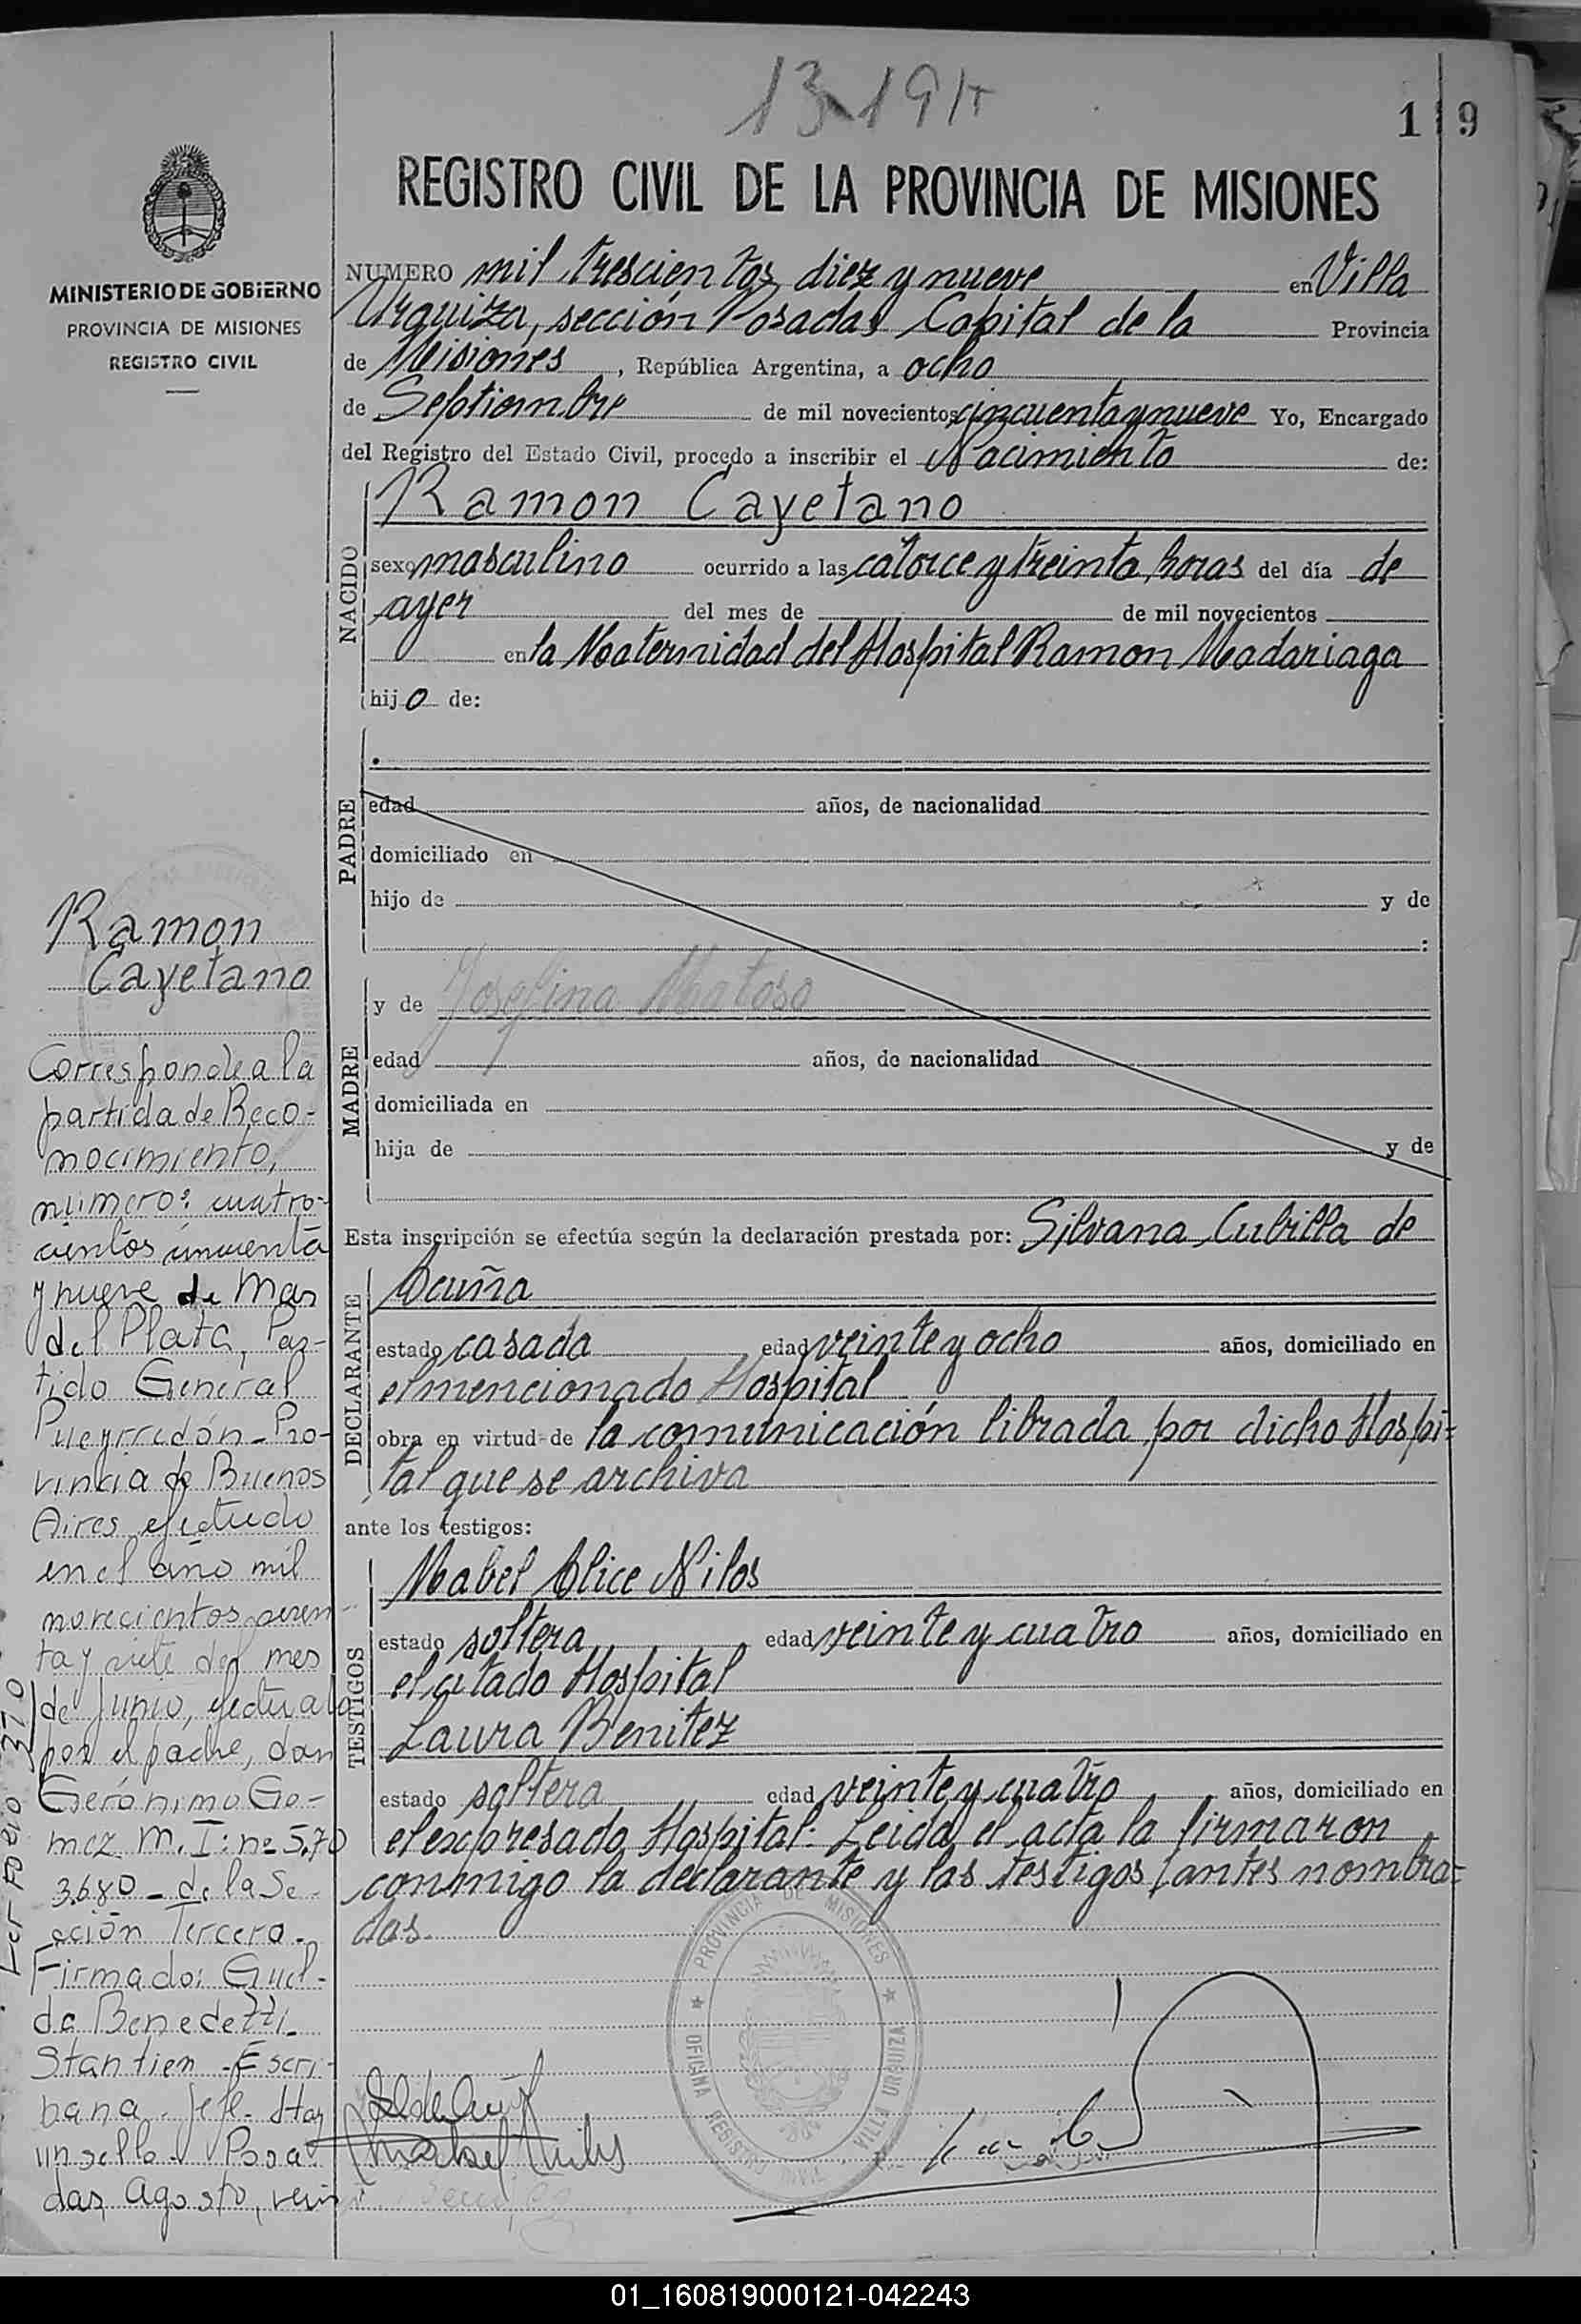 13-19
119
REGISTRO CIVIL DE LA PROVINCIA DE MISIONES
MINISTERIO DE GOBIERNO
PROVINCIA DE MISIONES
REGISTRO CIVIL
NUMERO mil trescientos diez y nueve en Villa
Urquiza, sección Posadas Capital de la Provincia
de Misiones, República Argentina, a ocho
de Septiembre de mil novecientos cincuenta y nueve Yo, Encargado
del Registro del Estado Civil, procedo a inscribir el Nacimiento de:
NACIDO
Ramon Cayetano
sexo masculino ocurrido a las catorce y treinta horas del día de
ayer del mes de de mil novecientos
en la Maternidad del Hospital Ramon Madariaga
hijo de:
PADRE
edad años, de nacionalidad
domiciliado en
hijo de y de
:
MADRE
y de Josefina Matoso
edad años, de nacionalidad
domiciliada en
hija de y de
Esta inscripción se efectúa según la declaración prestada por: Silvana Cubilla de
DECLARANTE
Acuña
estado casada edad veinte y ocho años, domiciliado en
el mencionado Hospital
obra en virtud de la comunicación librada por dicho Hospi=
tal que se archiva
ante los testigos:
TESTIGOS
Mabel Alice Nilos
estado soltera edad veinte y cuatro años, domiciliado en
el citado Hospital
Laura Benitez
estado soltera edad veinte y cuatro años, domiciliado en
el expresado Hospital: Leida el acta la firmaron
conmigo la declarante y las testigos antes nombra=
das.
PROVINCIA DE MISIONES
OFICINA REGISTRO CIVIL VILLA URQUIZA
Ramon
Cayetano
Corresponde a la
partida de Reco=
nocimiento,
número: cuatro-
cientos cincuenta
y nueve de Mar
del Plata, Par-
tido General
Pueyrredón - Pro-
vincia de Buenos
Aires, efectuado
en el año mil
novecientos
ta y siete del mes
de Junio, efectuado
por el padre, don
Gerónimo Go-
mez. M. I: nº 5.70
3.680 - de la Se-
cción Tercera.
Firmado: Guel-
da Benedetti.
Stantien - Escri-
bana - Jefe - Hay
un sello - Posa-
das, Agosto,
370
01_160819000121-042243